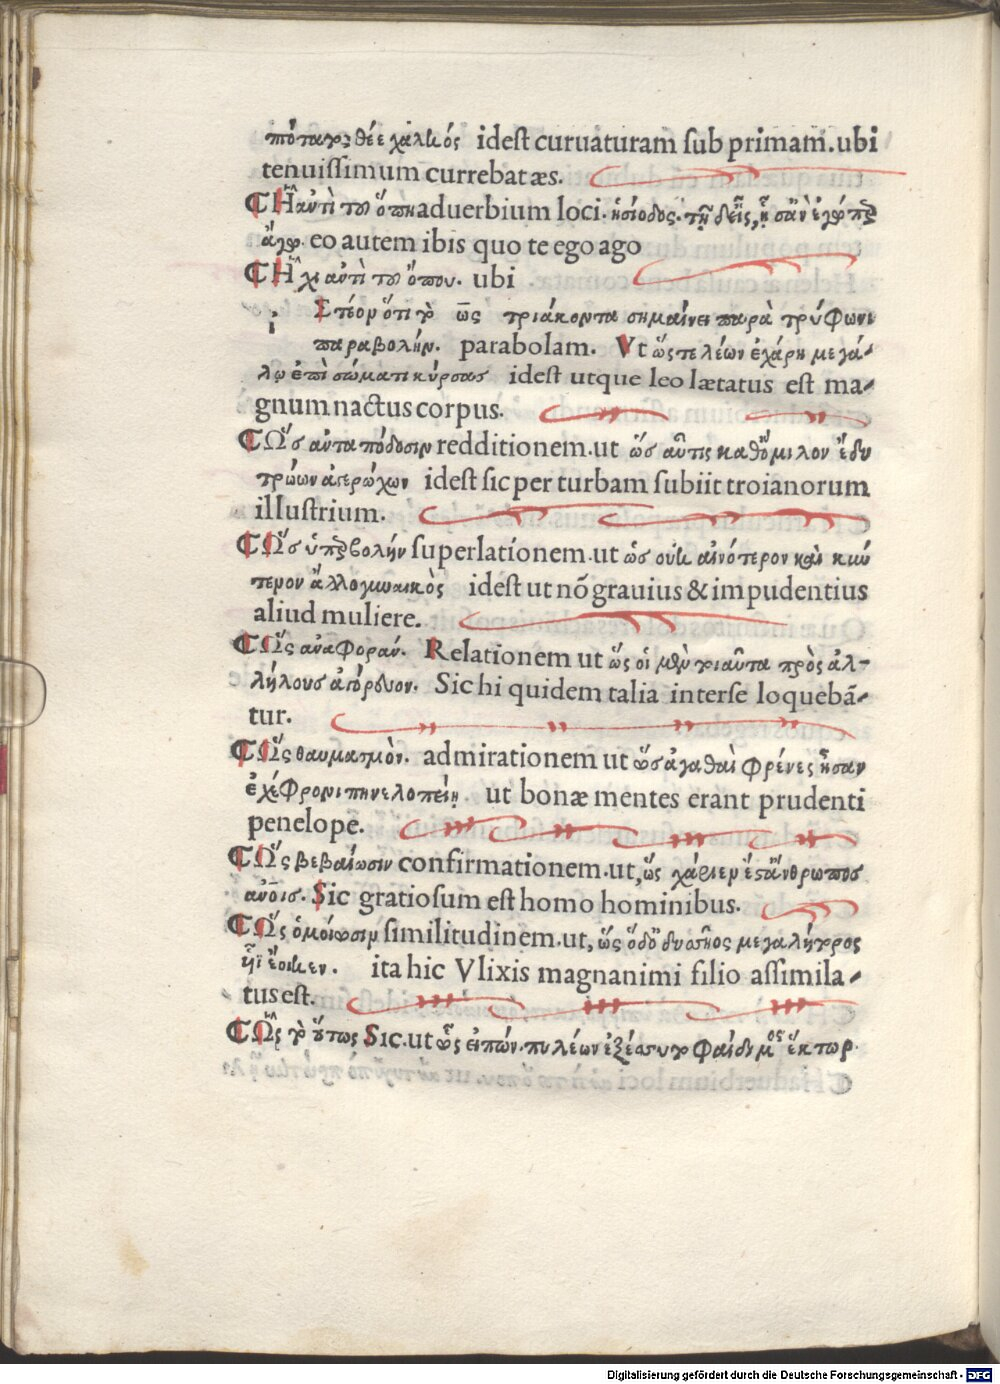 πύταγος θέε χαλκός idest curuaturam ſub primam. ubi
tenuiſſimum currebat æs.
Ἣ ἀντὶ τοῦ ὅπη aduerbium loci. ἡσίοδος. τῇ δ' εἶς, ᾗ σ' ἂν ἐγώ περ
ἄγω. eo autem ibis quo te ego ago
Ἧχι ἀντὶ τοῦ ὅπου. ubi
Ἰστέον ὅτι τὸ ὡς τριάκοντα σημαίνει παρὰ τρύφωνι
παραβολήν. parabolam. Vt ὥστε λέων ἐχάρη μεγά-
λῳ ἐπὶ σώματι κύρσας idest utque leo lætatus est ma-
gnum nactus corpus.
Ὣς ἀνταπόδοσιν redditionem. ut ὣς αὖτις καθ' ὅμιλον ἔδυ
τρώων ἀγερώχων idest sic per turbam ſubiit troianorum
illuſtrium.
Ὡς ὑπερβολήν ſuperlationem. ut ὡς οὐκ αἰνότερον καὶ κύν
τερον ἄλλο γυναικὸς idest ut nõ grauius & impudentius
aliud muliere.
Ὣς ἀναφοράν. Relationem ut ὣς οἱ μὲν τοιαῦτα πρὸς ἀλ-
λήλους ἀγόρευον. Sic hi quidem talia interſe loquebã-
tur.
Ὣς θαυμασμὸν. admirationem ut ὡς ἀγαθαὶ φρένες ἦσαν
ἐχέφρονι πηνελοπείῃ ut bonæ mentes erant prudenti
penelope.
Ὣς βεβαίωσιν confirmationem. ut, ὡς χάριεν ἔστ' ἄνθρωπος
ἀνοις. Sic gratioſum eſt homo hominibus.
Ὣς ὁμοίωσιν ſimilitudinem. ut, ὣς ὅδ' ὀδυσσῆος μεγαλήτορος
υἷϊ ἔοικεν. ita hic Vlixis magnanimi filio aſſimila-
tus eſt.
Ὣς τὸ οὕτως Sic. ut ὣς εἰπὼν. πυλέων ἐξέσσυτο φαίδιμος ἕκτωρ.
Digitalisierung gefördert durch die Deutsche Forschungsgemeinschaft - DFG